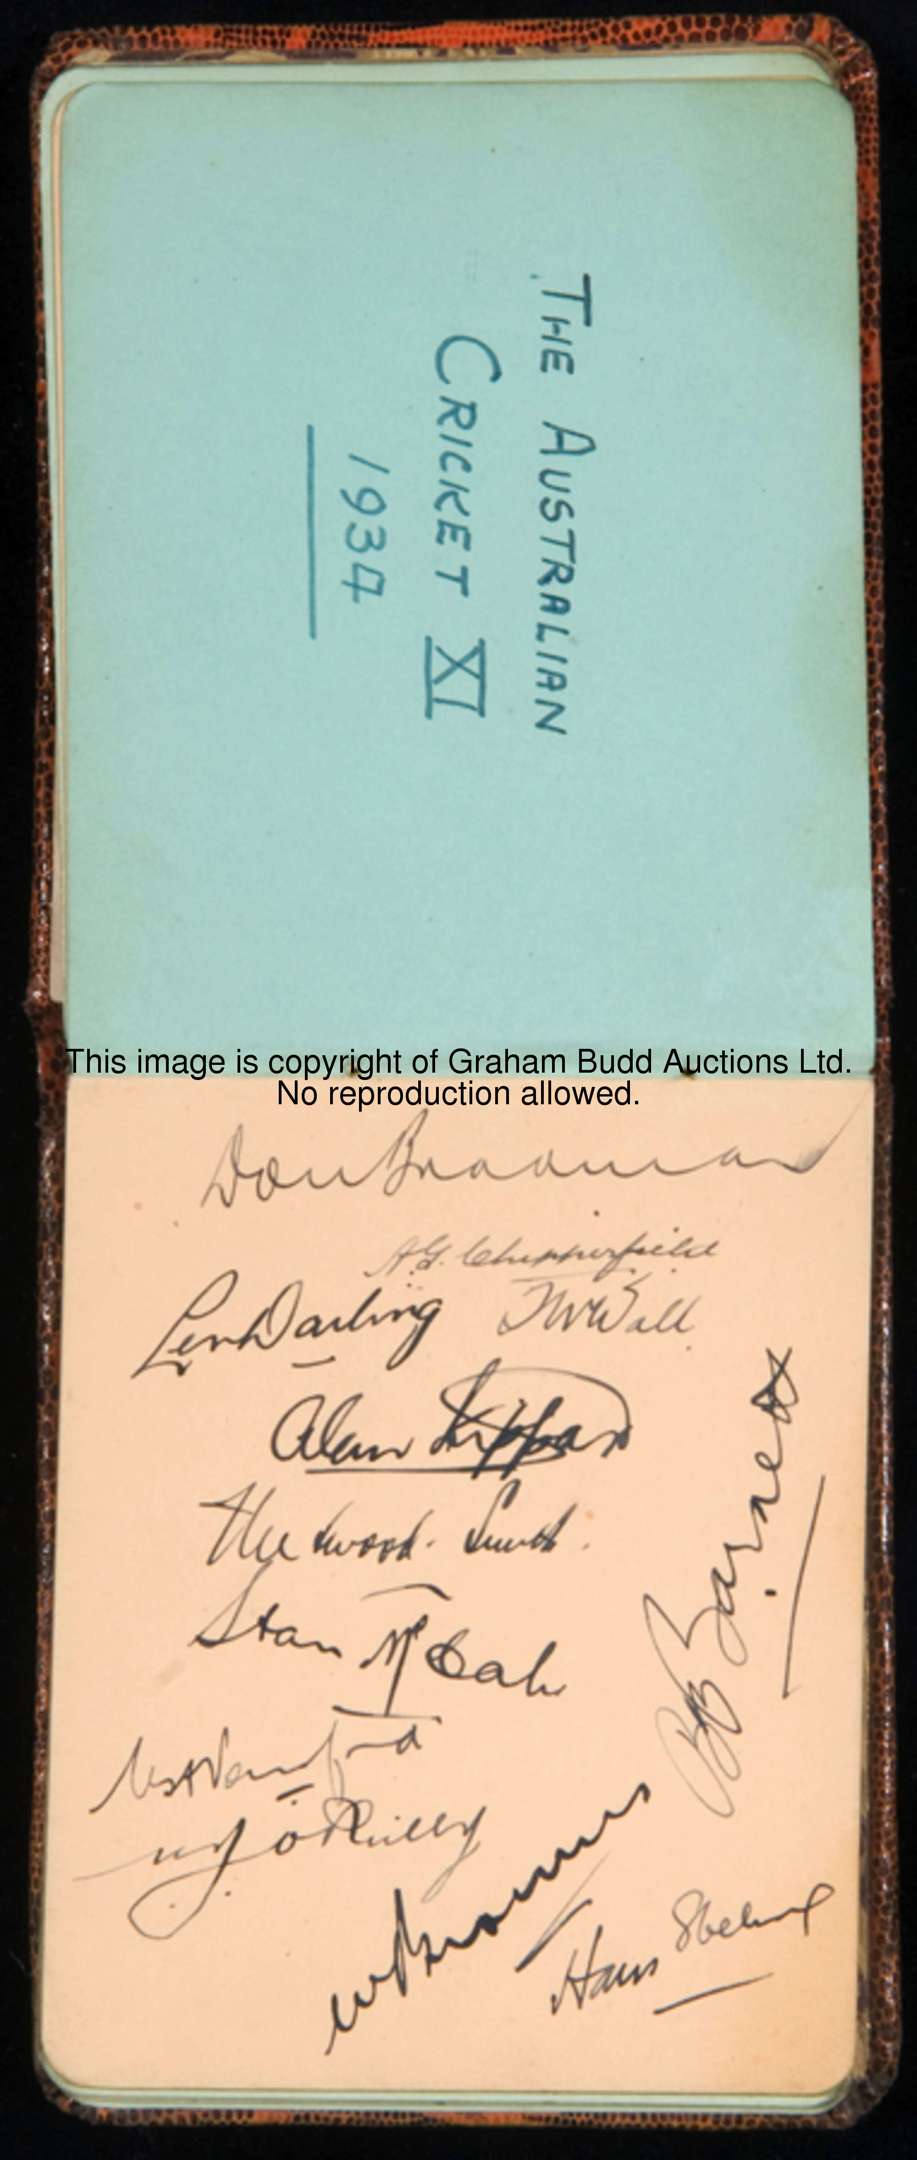 THE AUSTRALIAN
CRICKET XI
1934
This image is copyright of Graham Budd Auctions Ltd.
No reproduction allowed.
Don Bradman
A.G. Chipperfield
Len Darling
T W Wall
Alan Kippax
Fleetwood-Smith.
Stan McCabe
B A Barnett
W. J. O'Reilly
W A Brown
Hans Ebeling